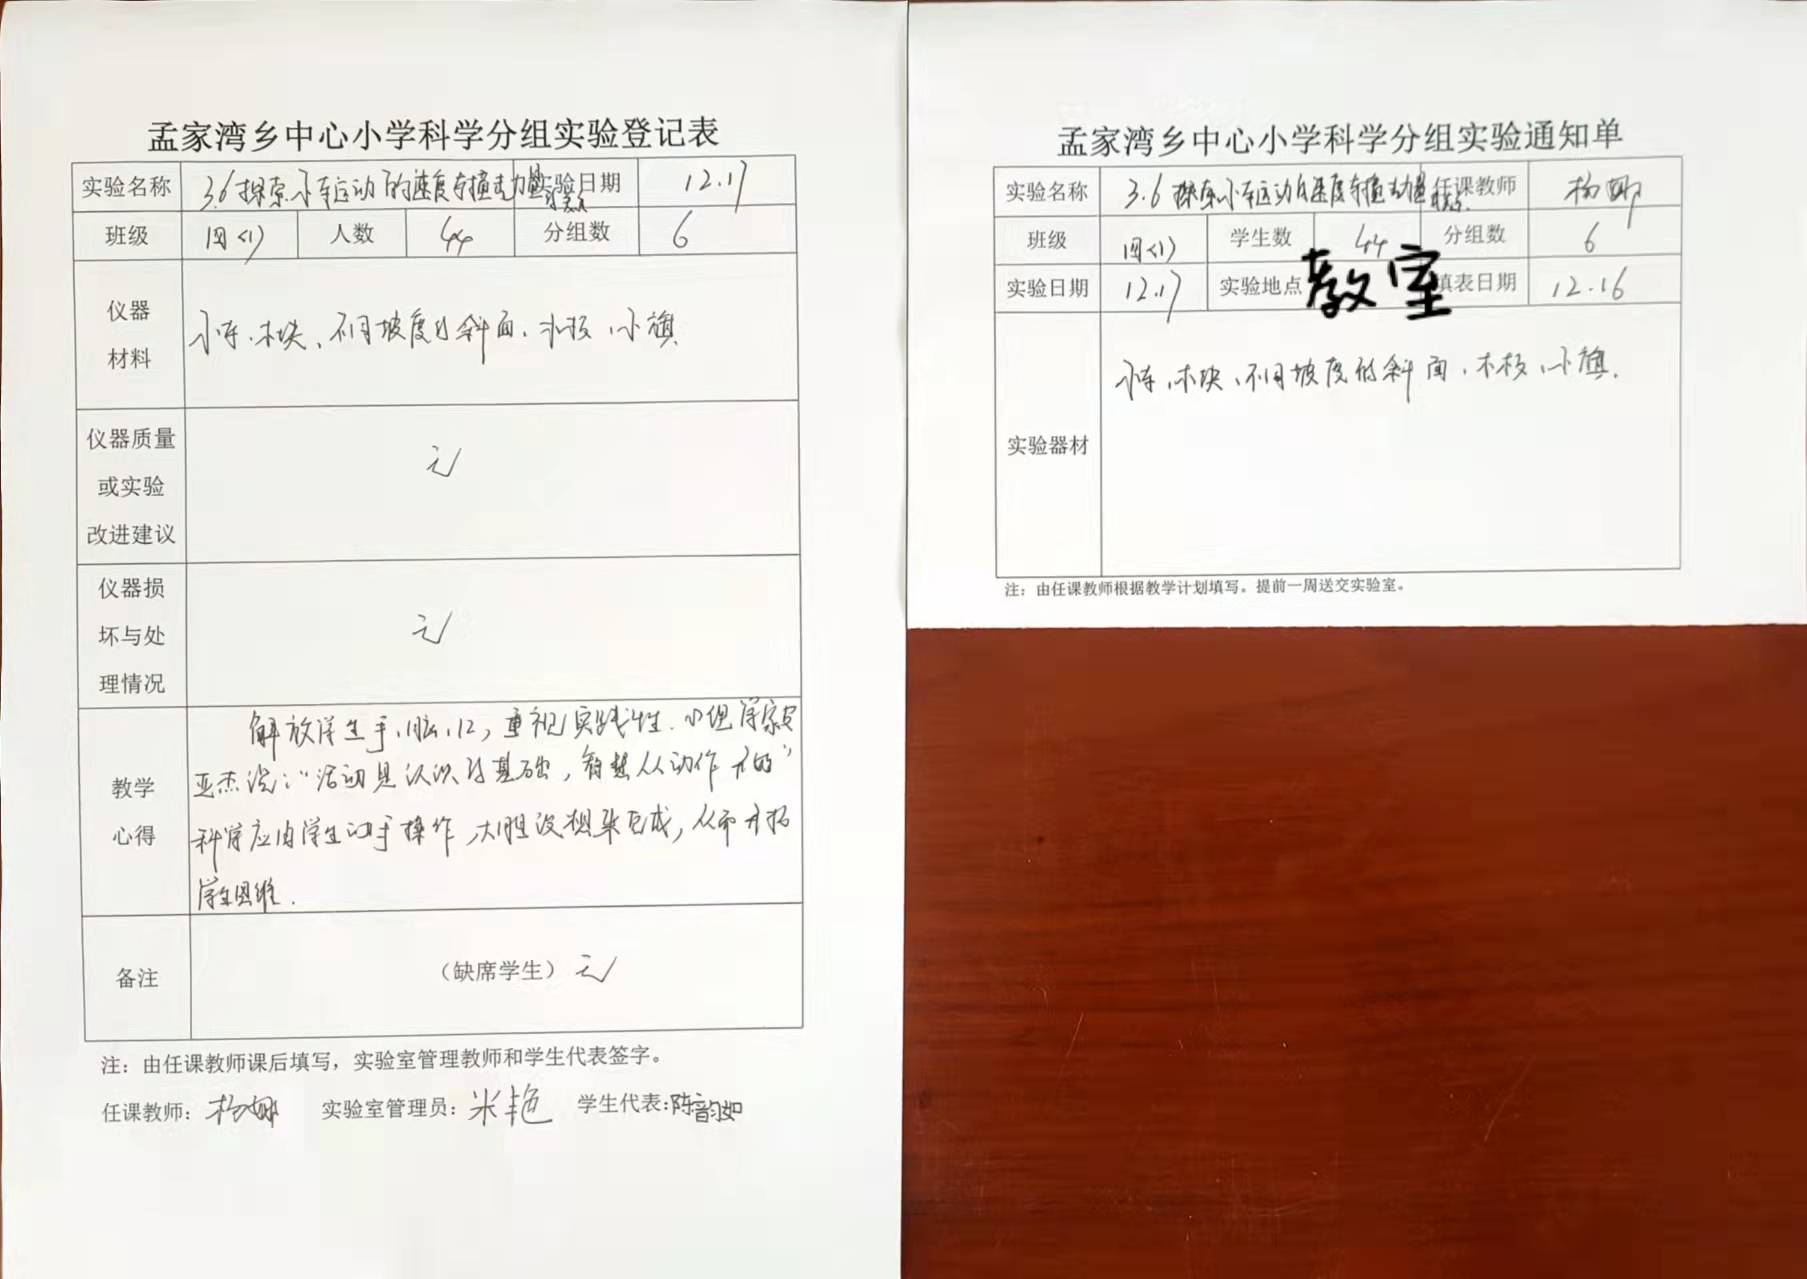 孟家湾乡中心小学科学分组实验登记表
实验名称 3.6探索小车运动的速度与撞击力量的关系 实验日期 12.17
班级 四(1) 人数 44 分组数 6
仪器
材料
小车、木块、不同坡度的斜面、木板、小旗
仪器质量
或实验
改进建议
无
仪器损
坏与处
理情况
无
教学
心得
解放学生手、脑、口，重视实践性.心理学家皮
亚杰说:"活动是认识的基础，智慧从动作开始"
科学应由学生动手操作，大胆设想来完成，从而开拓
学生思维.
备注
（缺席学生）无
注：由任课教师课后填写，实验室管理教师和学生代表签字。
任课教师：杨娜 实验室管理员：米艳 学生代表：陈韵如
孟家湾乡中心小学科学分组实验通知单
实验名称 3.6 探索小车运动的速度与撞击力量的关系 任课教师 杨娜
班级 四(1) 学生数 44 分组数 6
实验日期 12.17 实验地点 教室 填表日期 12.16
实验器材
小车、木块、不同坡度的斜面、木板、小旗.
注：由任课教师根据教学计划填写。提前一周送交实验室。